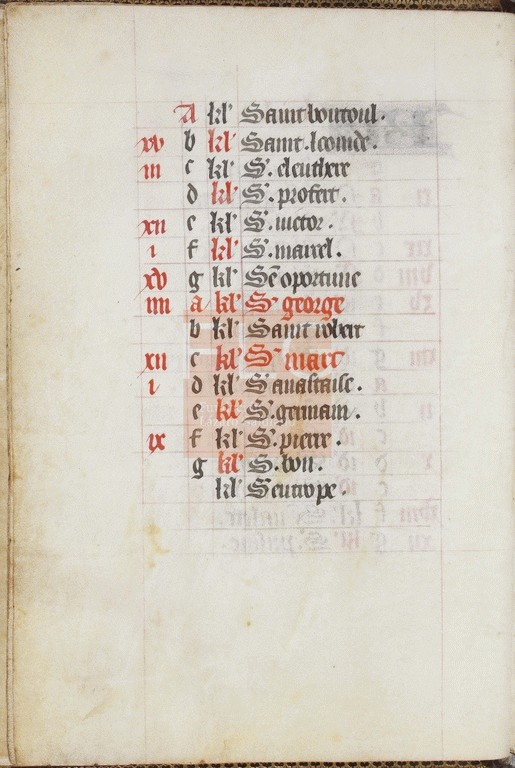 A kl' Saint boutoul.
xv b kl' Saint leonide.
iii c kl' S'. eleuthere
d kl' S'. profert.
xii e kl' S'. victor.
i f kl' S'. marcel.
xv g kl' Sẽ oportune
iiii a kl' S' george
b kl' Saint robert
xii c kl' S' marc
i d kl' S' anastaise.
e kl' S'. germain.
ix f kl' S'. pierre.
g kl' S. bon.
kl' S eutrope.